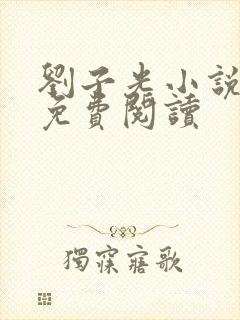 劉子光小說
免費閱讀
獨寐寤歌